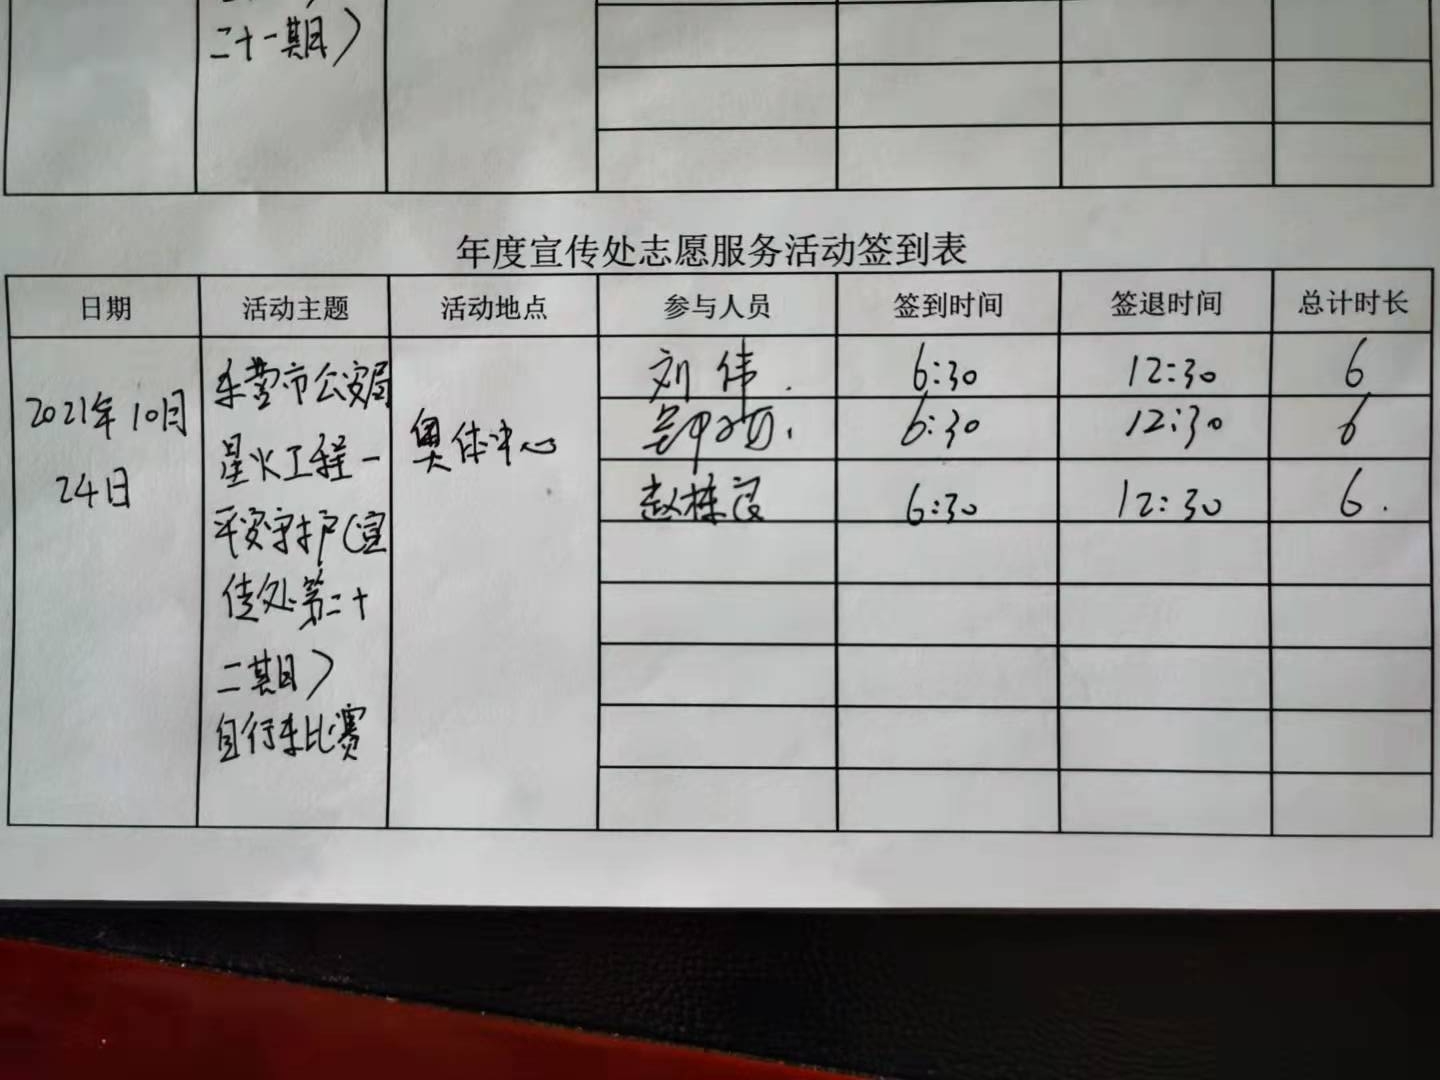 二十一期)
年度宣传处志愿服务活动签到表
日期 活动主题 活动地点 参与人员 签到时间 签退时间 总计时长
东营市公安局 刘伟 6:30 12:30 6
2021年10月 奥体中心 6:30 12:30 6
星火工程一
24日 赵栋良 6:30 12:30 6.
平安守护(宣
传处第二十
二期)
自行车比赛